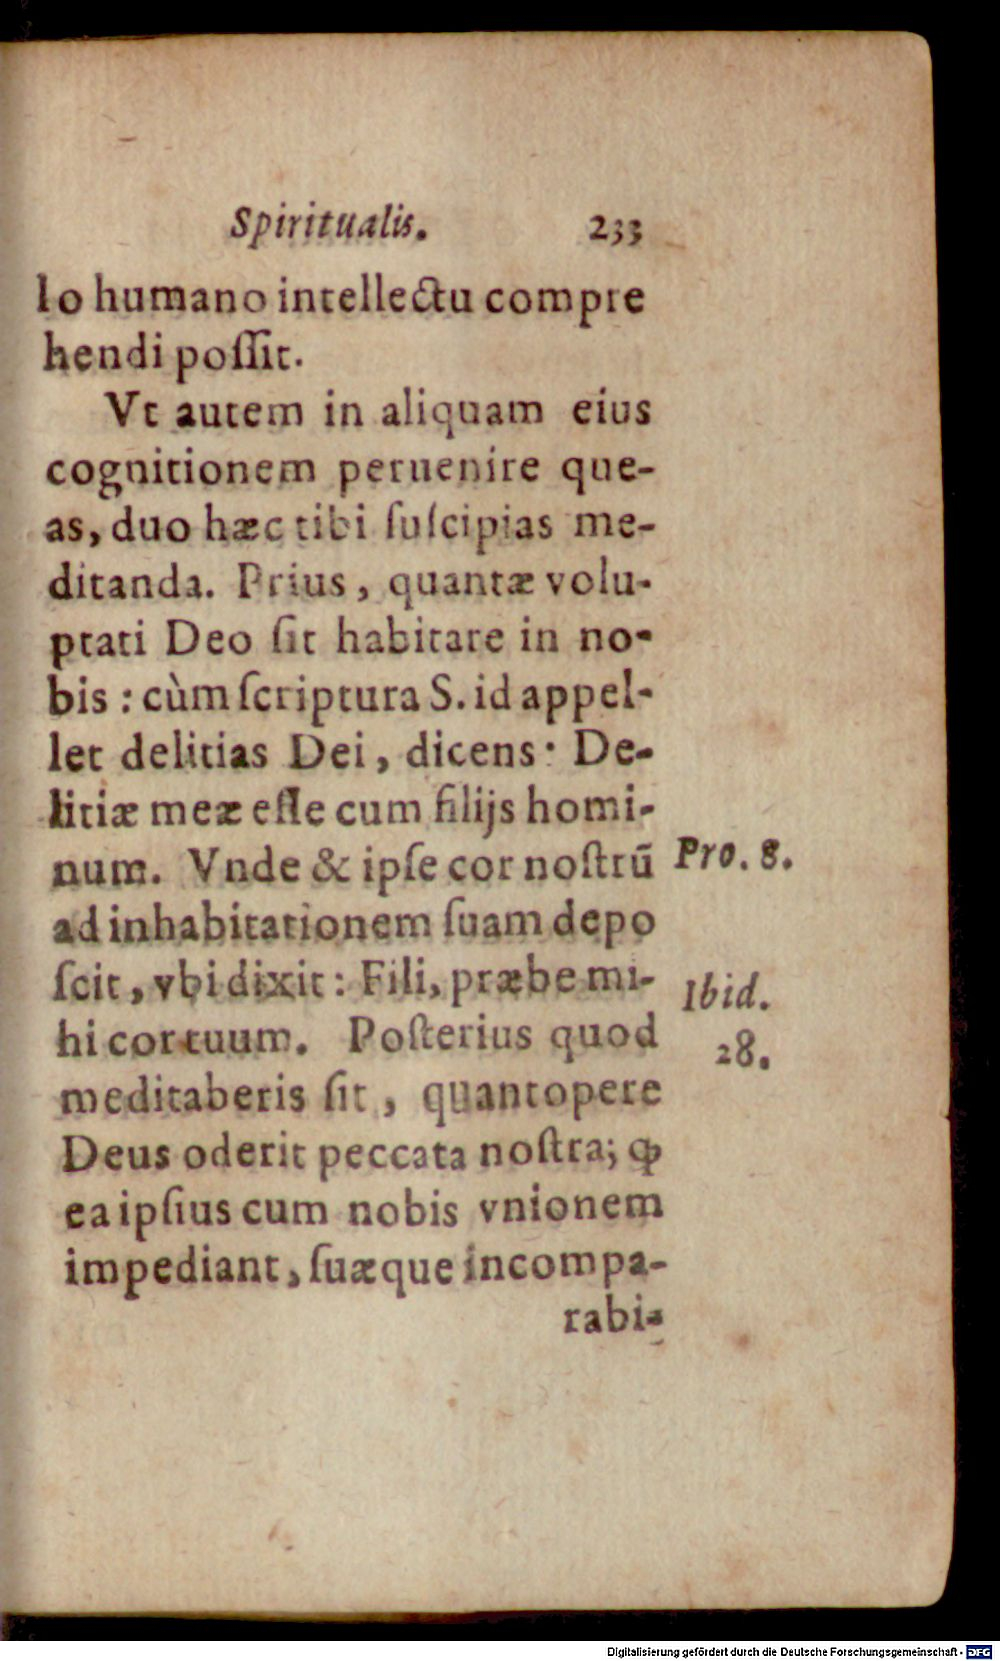 Spiritualis. 233
lo humano intellectu compre
hendi poſſit.
Vt autem in aliquam eius
cognitionem peruenire que-
as, duo hæc tibi ſuſcipias me-
ditanda. Prius, quantæ volu-
ptati Deo ſit habitare in no-
bis : cùm ſcriptura S. id appel-
let delitias Dei, dicens: De-
litiæ meæ eſſe cum filijs homi-
num. Vnde & ipſe cor noſtrū
Pro. 8.
ad inhabitationem ſuam depo
ſcit, vbi dixit: Fili, præbe mi-
Ibid.
hi cor tuum. Poſterius quod
28.
meditaberis ſit, quantopere
Deus oderit peccata noſtra; ꝙ
ea ipſius cum nobis vnionem
impediant, ſuæque incompa-
rabi-
Digitalisierung gefördert durch die Deutsche Forschungsgemeinschaft - DFG